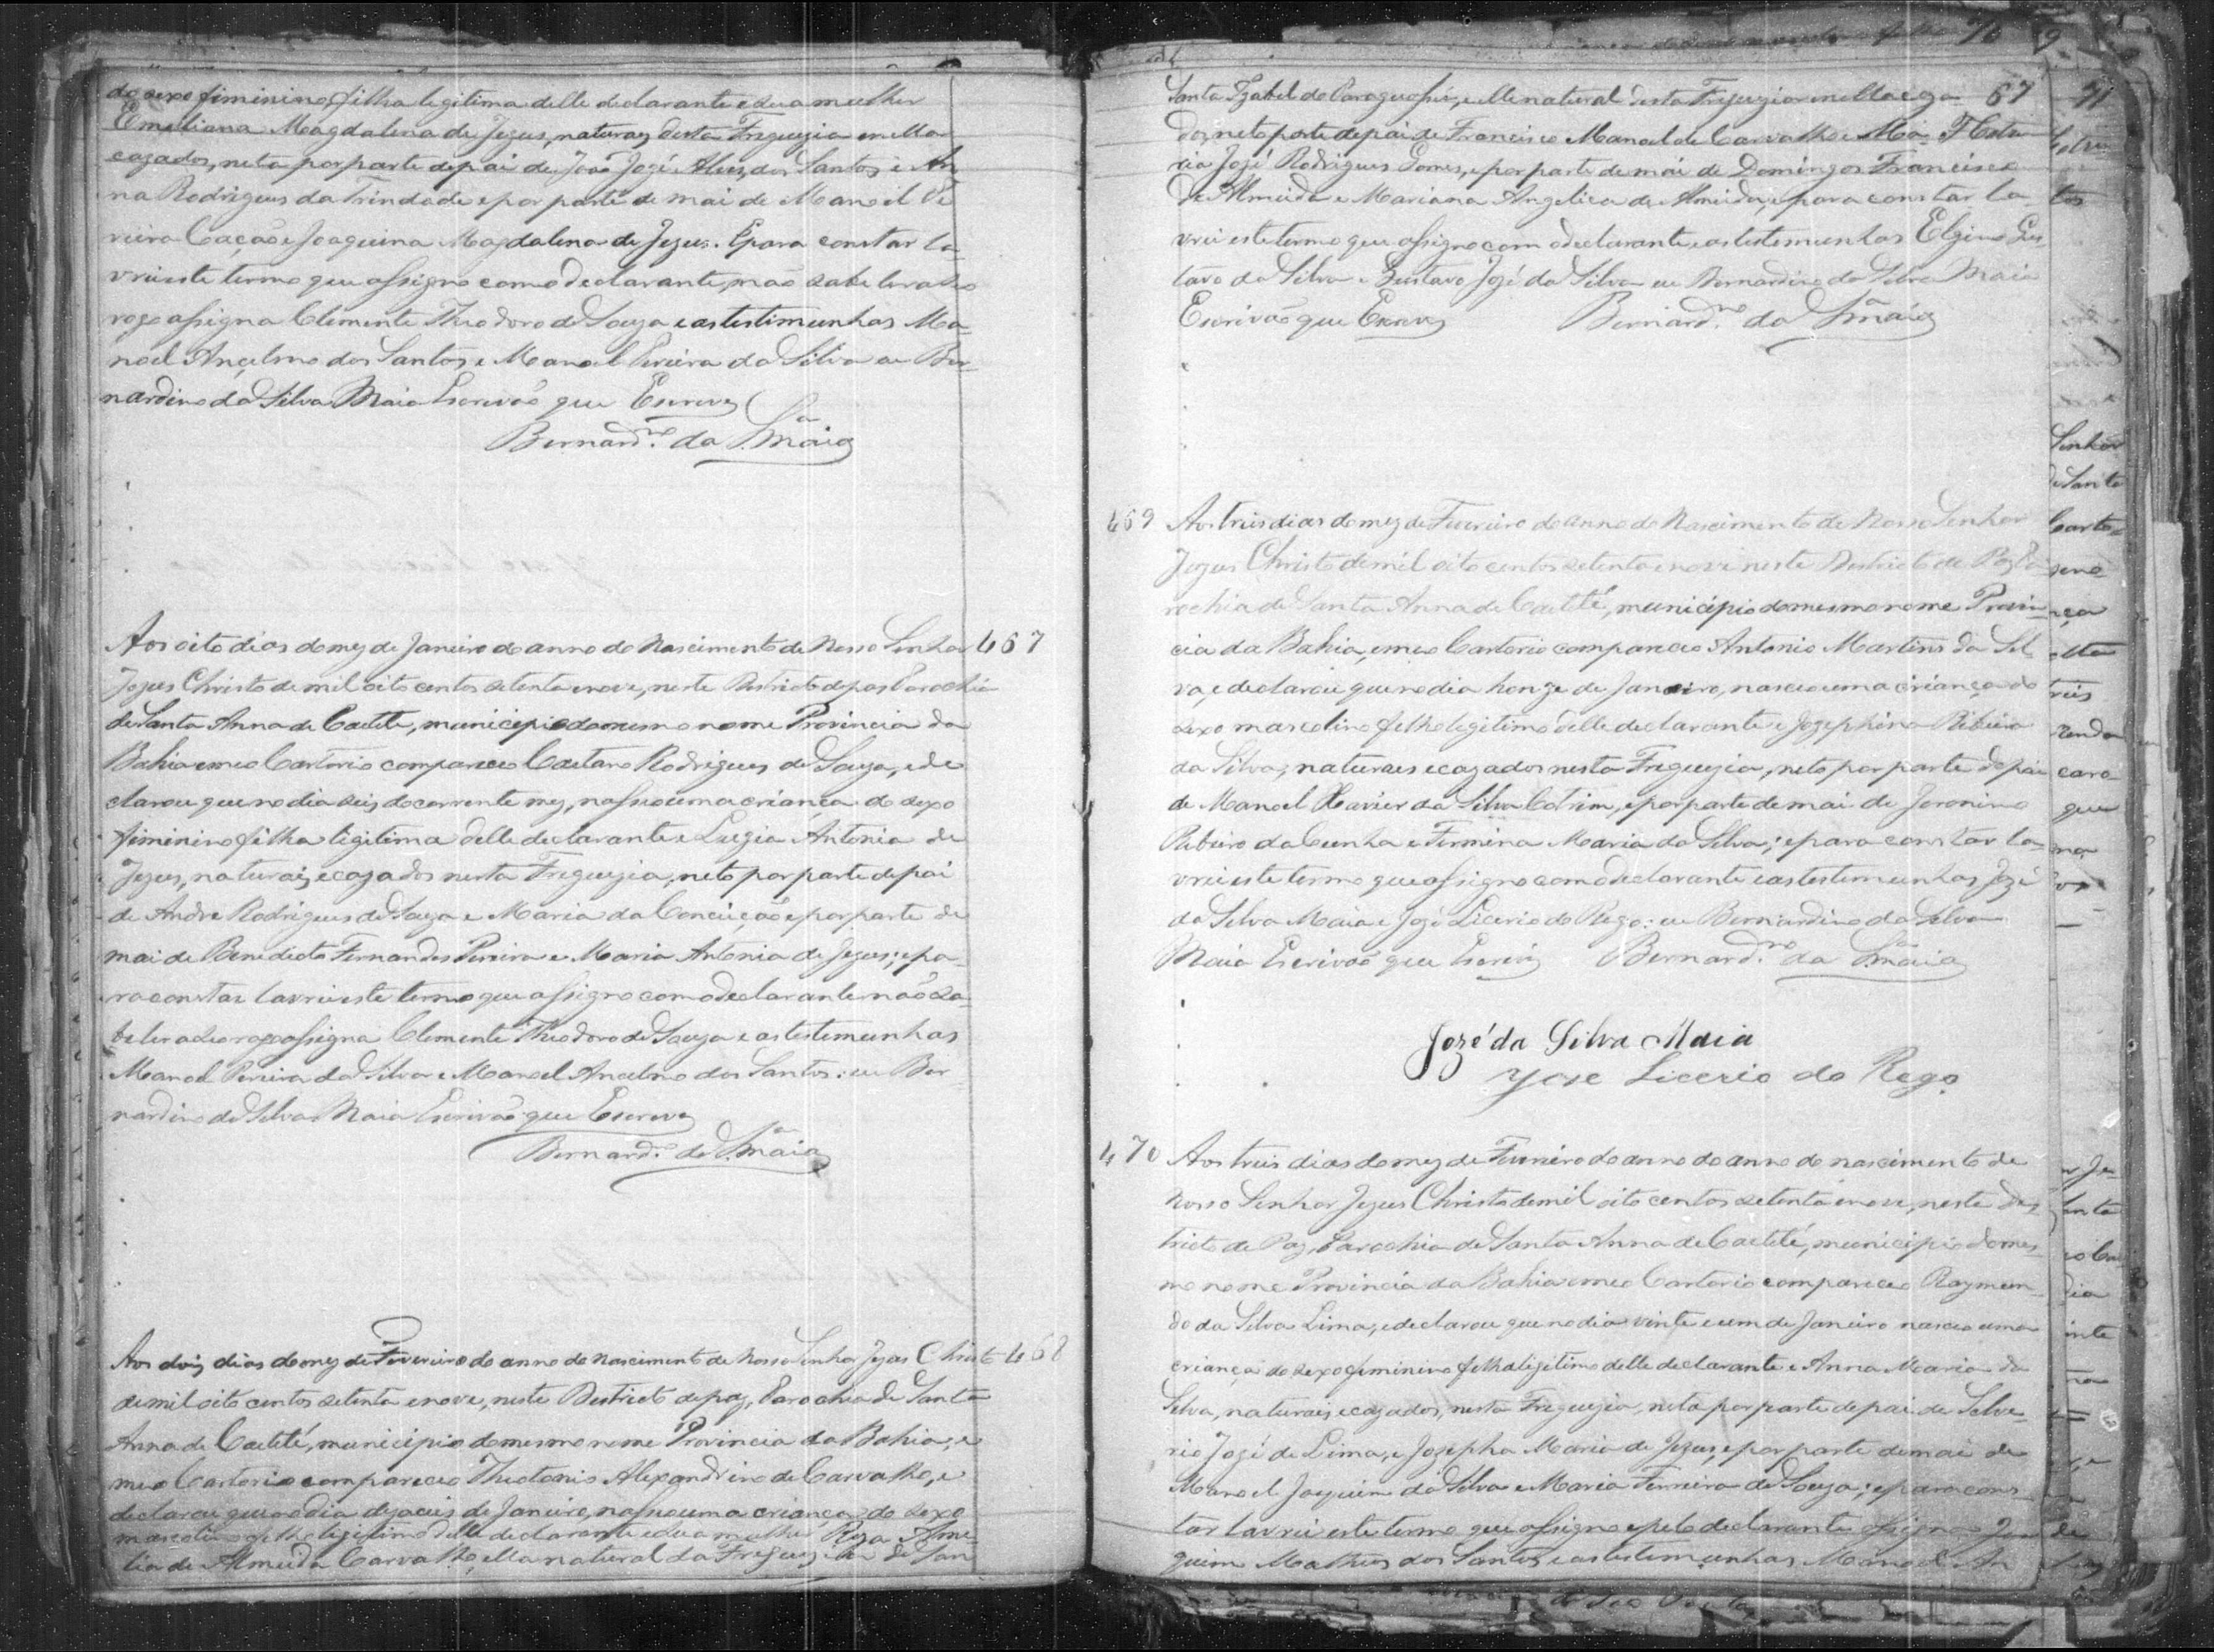 do sexo fiminino, filha legitima delle declarante e sua mulher
Emeliana Magdalena de Jezus, naturaes desta Freguezia e nella
cazados, neta por parte de pai de João Jozé Alves dos Santos e An
na Rodrigues da Trindade e por parte de mai de Manoel Pe
reira Cação e Joaquina Magdalena de Jezus. E para constar la
vrei este termo que assigno com o declarante, não sabe ler a seo
rogo assigna Clemente Theodoro de Souza e as testimunhas Ma
noel Ançelmo dos Santos, e Manoel Pereira da Silva eu Ber
nardino da Silva Maia Escrivão que Escrevy
Bernard.no da S.a Maia
Aos oito dias do mez de Janeiro do anno do Nascimento de Nosso Senhor 467
Jezus Christo de mil oito centos setenta e nove, neste Destricto de paz Parochia
de Santa Anna de Caetité, municipio do mesmo nome Provincia da
Bahia e meo Cartorio compareceo Caetano Rodrigues de Souza, e de
clarou que no dia seis do corrente mez, nasseo uma criança do sexo
fiminino filha ligitima delle declarante e Luzia Antonia de
Jezus, naturaes e cazados nesta Freguezia, neto por parte de pai
de André Rodrigues de Souza e Maria da Conceição e por parte de
mai de Benedicto Fernandes Pereira e Maria Antonia de Jezus; e pa
ra constar lavrei este termo que assigno com o declarante não sa
be ler a seo rogo assigna Clemente Theodoro de Souza e as testemunhas
Manoel Pereira da Silva e Manoel Ancelmo dos Santos: eu Ber
nardino da Silva Maia Escrivão que Escrevy
Bernard.o da S.a Maia
Aos dois dias do mez de Fevereiro do anno do Nascimento de Nosso Senhor Jezus Christo 468
de mil oito centos setenta e nove, neste Destricto de paz, Parochia de Santa
Anna de Caetité, municipio do mesmo nome Provincia da Bahia, e
meo Cartorio compareceo Theotonio Alexandrino de Carvalho, e
declarou que no dia dezaseis de Janeiro, nasseo uma criança do sexo
mascolino filho legitimo delle declarante e sua mulher Roza Ame
lia de Almeida Carvalho, ella natural da Freguezia de San
67
Santa Izabel do Paraguassú, e elle natural desta Freguezia e nella caza
dos, neto por parte de pai de Francisco Manoel de Carvalho e
ria Jozé Rodrigues Gomes, e por parte de mai de Domingos Francisco
de Almeida e Mariana Angelica de Almeida; e para constar la
vrei este termo que assigno com o declarante e as testemunhas Elgino Gus
tavo da Silva e Gustavo Jozé da Silva eu Bernardino da Silva Maia
Escrivão que Escrevy Bernard.no da S.a Maia
469 Aos treis dias do mez de Fevereiro do anno do Nascimento de Nosso Senhor
Jezus Christo de mil oito centos setenta e nove neste Destricto de Paz Pa
rochia de Santa Anna de Caetité, municipio do mesmo nome Provin
cia da Bahia, e meo Cartorio compareceo Antonio Martins da Sil
va, e declarou que no dia honze de Janeiro, nasceo uma criança do
sexo mascolino filho legitimo delle declarante e Jozephina Ribeira
da Silva, naturaes e cazados nesta Freguezia, neto por parte de pai
de Manoel Xavier da Silva Cotrim, e por parte de mai de Jeronimo
Ribeiro da Cunha e Firmina Maria da Silva; e para constar la
vrei este termo que assigno com o declarante e as testemunhas Jozé
da Silva Maia e Jozé Licerio do Rego: eu Bernardino da Silva
Maia Escrivão que Escrevy Bernard.no da S.a Maia
Jozé da Silva Maia
Jose Licerio do Rego
470 Aos treis dias do mez de Fevereiro do anno do anno do nascimento de
Nosso Senhor Jezus Christo de mil oito centos setenta e nove, neste Des
tricto de Paz, Parochia de Santa Anna de Caetité, municipio do mes
mo nome Provincia da Bahia e meo Cartorio compareceo Raymun
do da Silva Lima, e declarou que no dia vinte e um de Janeiro nasceo uma
criança do sexo fiminino filha legitima delle declarante e Anna Maria da
Silva, naturaes e cazados, nesta Freguezia, neta por parte de pai de Silve
rio Jozé de Lima, e Jozepha Maria de Jezus, e por parte de mai de
Manoel Joaquim da Silva e Maria Ferreira de Souza; e para cons
tar lavrei este termo que assigno e pelo declarante assigna Joa
quim Matheus dos Santos, e as testemunhas Manoel An